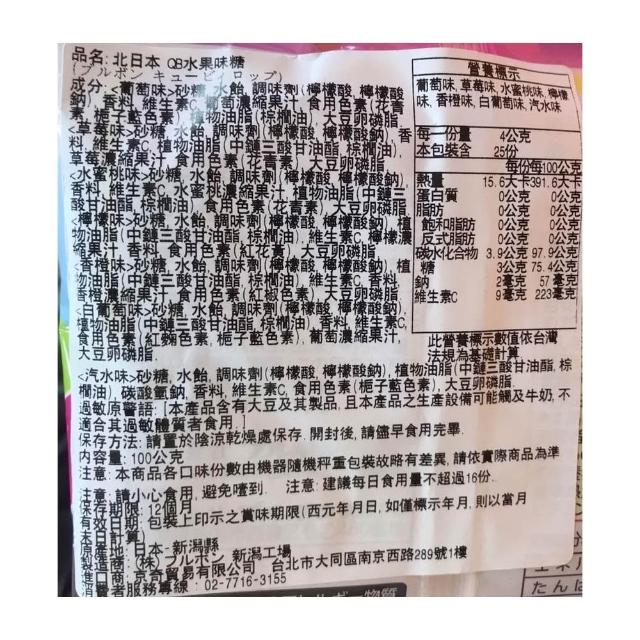 品名: 北日本 QB水果味糖
(ブルボン キュービィロップ)
成分: <葡萄味>砂糖, 水飴, 調味劑(檸檬酸, 檸檬酸
鈉), 香料, 維生素C, 葡萄濃縮果汁, 食用色素(花青
素, 梔子藍色素), 植物油脂(棕櫚油), 大豆卵磷脂.
<草莓味>砂糖, 水飴, 調味劑(檸檬酸, 檸檬酸鈉), 香
料, 維生素C, 植物油脂(中鏈三酸甘油酯, 棕櫚油),
草莓濃縮果汁, 食用色素(花青素), 大豆卵磷脂.
<水蜜桃味>砂糖, 水飴, 調味劑(檸檬酸, 檸檬酸鈉),
香料, 維生素C, 水蜜桃濃縮果汁, 植物油脂(中鏈三
酸甘油酯, 棕櫚油), 食用色素(花青素), 大豆卵磷脂.
<檸檬味>砂糖, 水飴, 調味劑(檸檬酸, 檸檬酸鈉), 植
物油脂(中鏈三酸甘油酯, 棕櫚油), 維生素C, 檸檬濃
縮果汁, 香料, 食用色素(紅花黃), 大豆卵磷脂.
<香橙味>砂糖, 水飴, 調味劑(檸檬酸, 檸檬酸鈉), 植
物油脂(中鏈三酸甘油酯, 棕櫚油), 維生素C, 香料,
香橙濃縮果汁, 食用色素(紅椒色素), 大豆卵磷脂.
<白葡萄味>砂糖, 水飴, 調味劑(檸檬酸, 檸檬酸鈉),
植物油脂(中鏈三酸甘油酯, 棕櫚油), 香料, 維生素C,
食用色素(紅麴色素, 梔子藍色素), 葡萄濃縮果汁,
大豆卵磷脂.
<汽水味>砂糖, 水飴, 調味劑(檸檬酸, 檸檬酸鈉), 植物油脂(中鏈三酸甘油酯, 棕
櫚油), 碳酸氫鈉, 香料, 維生素C, 食用色素(梔子藍色素), 大豆卵磷脂.
過敏原警語: [本產品含有大豆及其製品, 且本產品之生產設備可能觸及牛奶, 不
適合其過敏體質者食用.]
保存方法: 請置於陰涼乾燥處保存. 開封後, 請儘早食用完畢.
內容量: 100公克
注意: 本商品各口味份數由機器隨機秤重包裝故略有差異, 請依實際商品為準
注意: 請小心食用, 避免噎到. 注意: 建議每日食用量不超過16份.
保存期限: 12個月
有效日期: 包裝上印示之賞味期限(西元年月日, 如僅標示年月, 則以當月
末日計算)
原產地: 日本-新潟縣
製造商: (株)ブルボン 新潟工場
進口商: 京奇貿易有限公司 台北市大同區南京西路289號1樓
消費者服務專線: 02-7716-3155
營養標示
葡萄味, 草莓味, 水蜜桃味, 檸檬
味, 香橙味, 白葡萄味, 汽水味
每一份量 4公克
本包裝含 25份
每份 每100公克
熱量 15.6大卡 391.6大卡
蛋白質 0公克 0公克
脂肪 0公克 0公克
飽和脂肪 0公克 0公克
反式脂肪 0公克 0公克
碳水化合物 3.9公克 97.9公克
糖 3公克 75.4公克
鈉 2毫克 57毫克
維生素C 9毫克 223毫克
此營養標示數值依台灣
法規為基礎計算
たんぱ